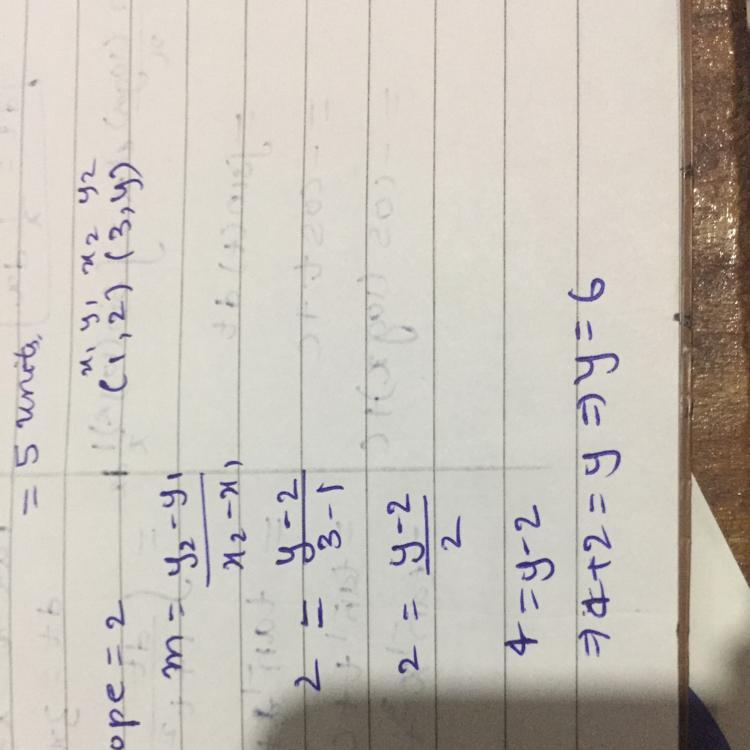 = 5 units.
ope = 2
x₁ y₁ x₂ y₂
(1, 2) (3, y)
m = y₂ - y₁ / x₂ - x₁
2 = y - 2 / 3 - 1
2 = y - 2 / 2
4 = y - 2
⇒ 4 + 2 = y ⇒ y = 6